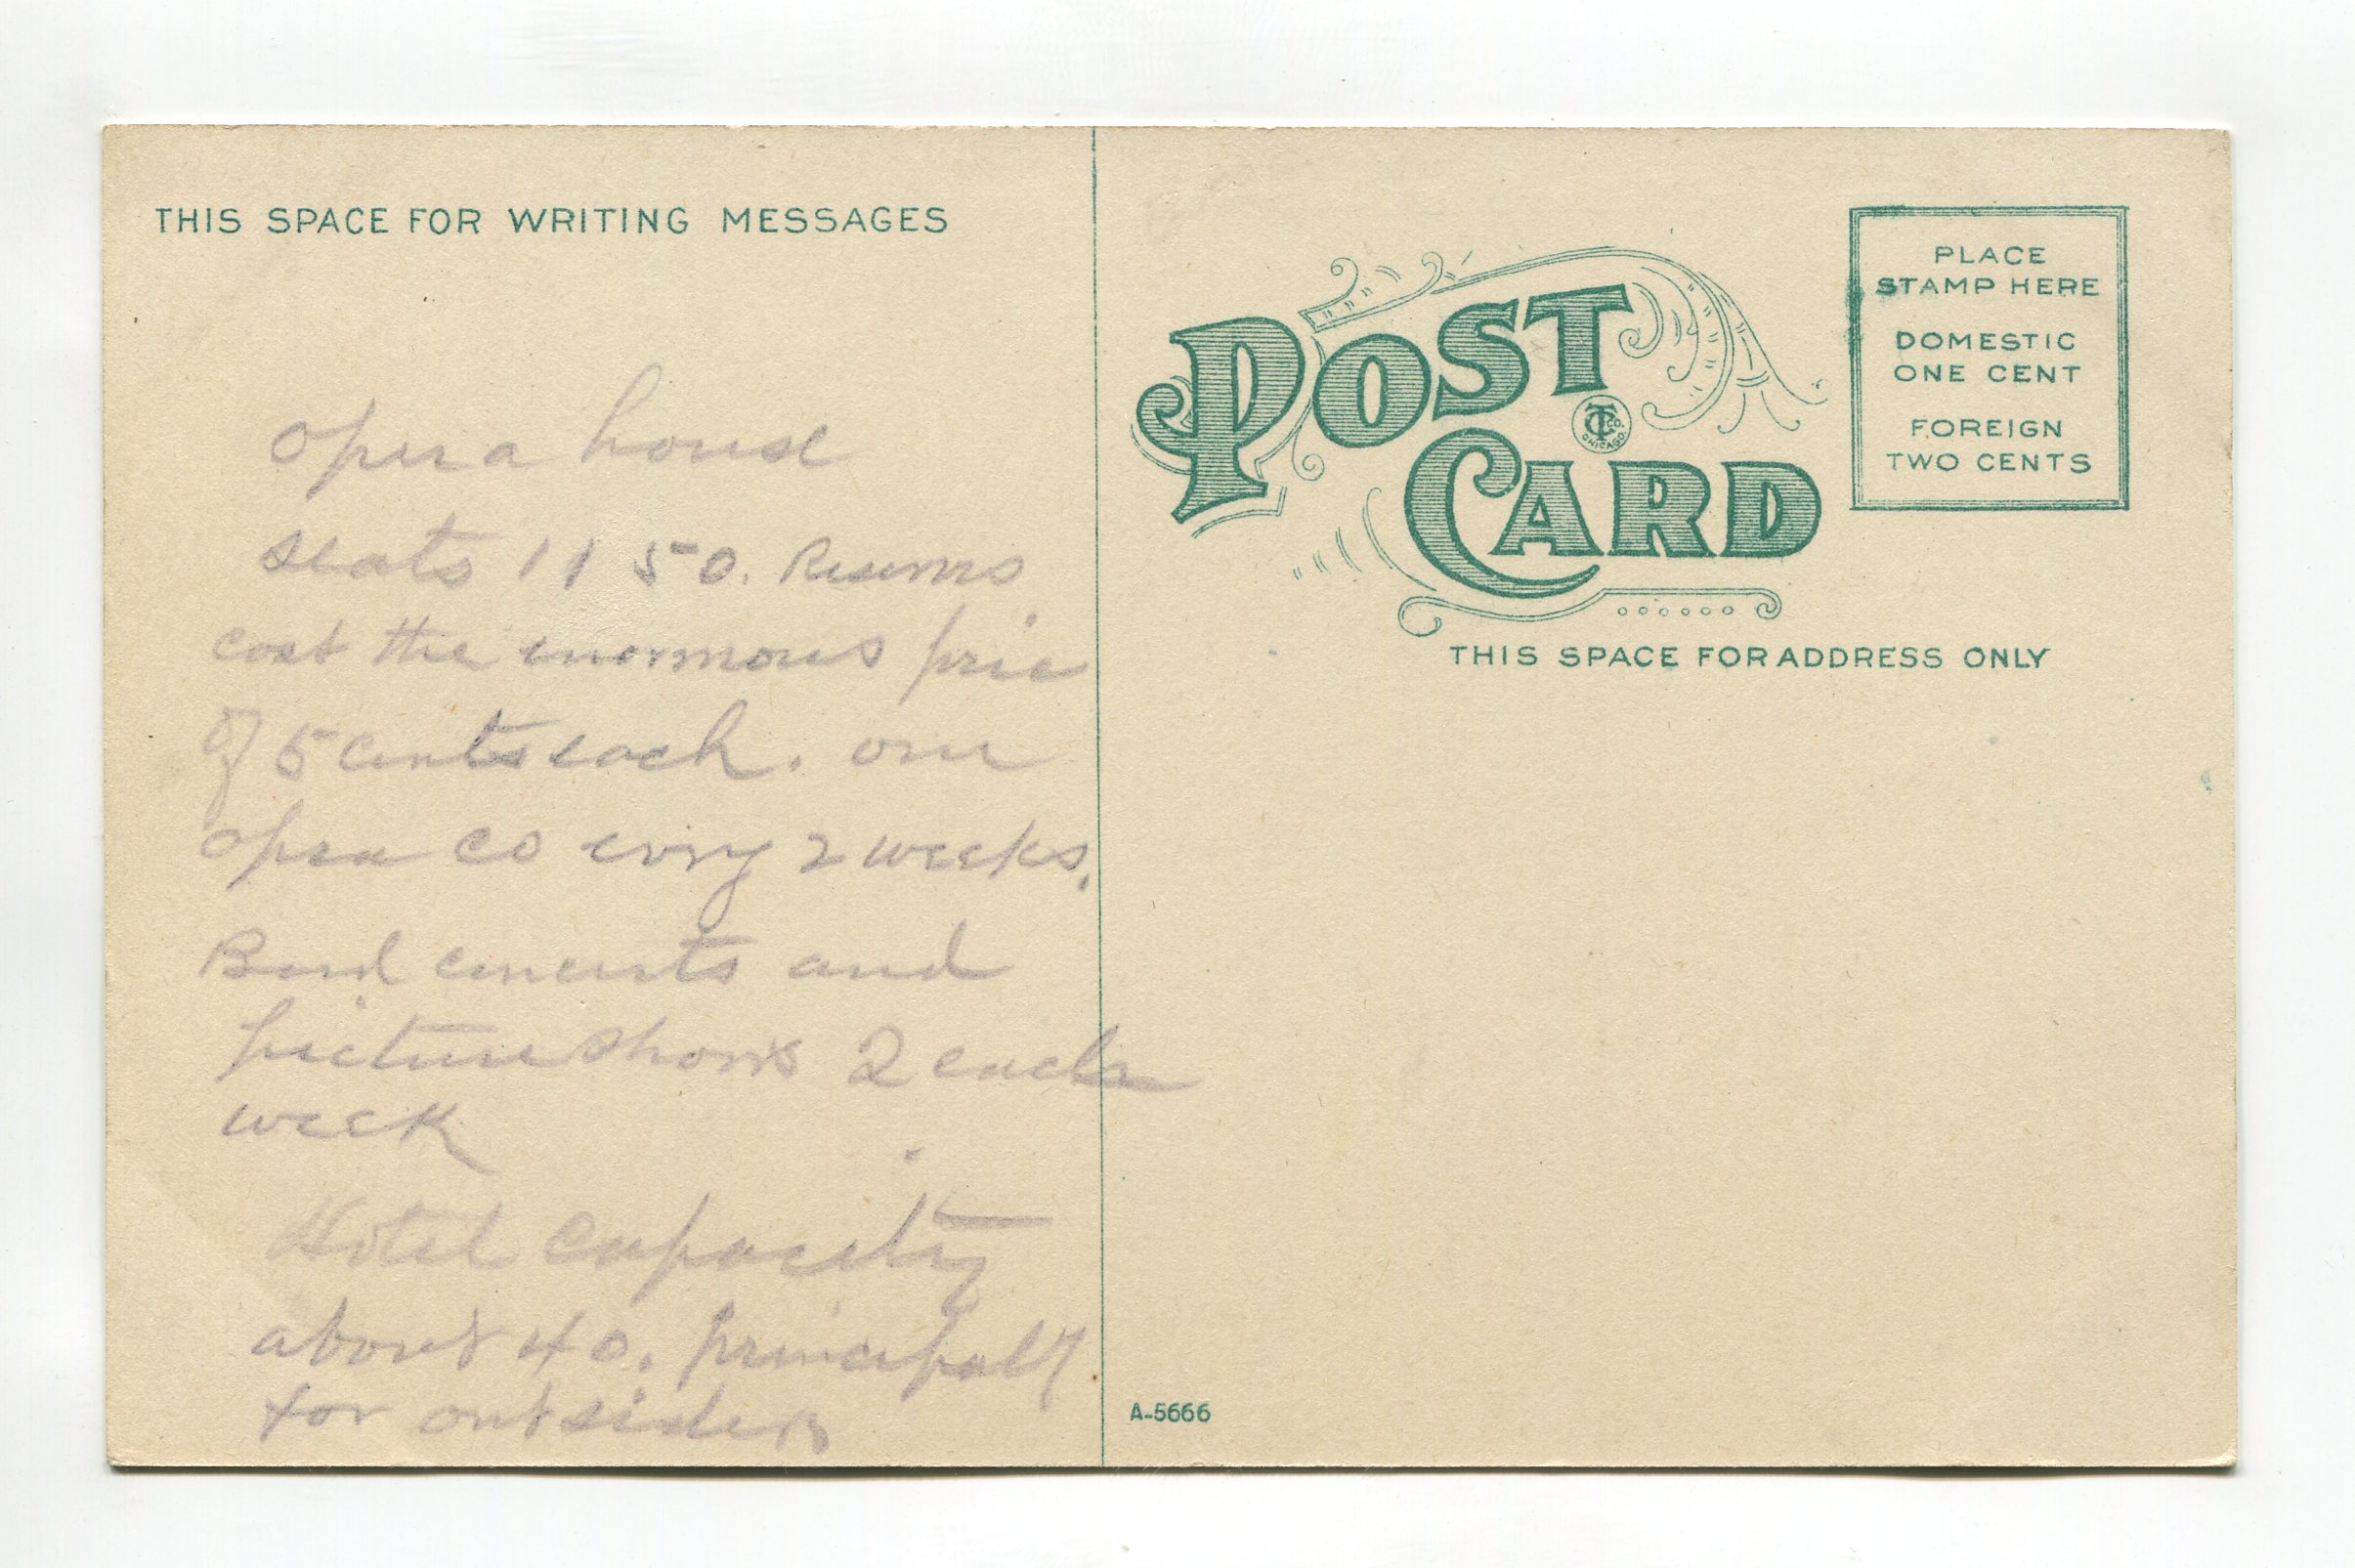 THIS SPACE FOR WRITING MESSAGES
opera house
seats 1150. Reserves
cost the enormous pric
of 5 cents each. one
opera co evry 2 weeks.
Band concerts and
picture shows 2 each
week
Hotel capacity
about 40. principaly
for outsiders
POST CARD
C.T. CO. CHICAGO.
PLACE
STAMP HERE
DOMESTIC
ONE CENT
FOREIGN
TWO CENTS
THIS SPACE FOR ADDRESS ONLY
A-5666